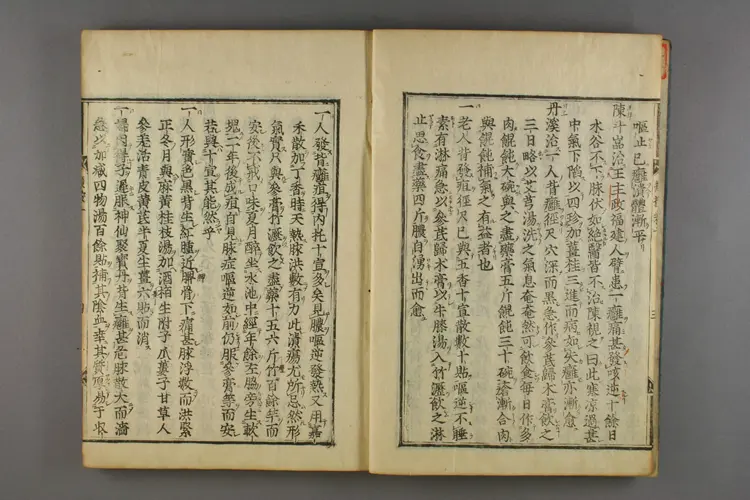 嘔止已癰潰體漸平
陳斗嵓治王主政福建人臂患一癰痛甚發咳逆十餘日
水谷不下脉伏如絶醫皆不治陳視之曰此寒凉過甚
中氣下陥以四珍加薑桂三進而病如失癰亦漸愈
丹溪治一人背癰徑尺穴深而黒急作參茋歸木膏飲之
三日略以艾芎湯洗之氣息奄奄然可飲食每日作多
肉餛飩大碗與之盡藥膏五斤餛飩三十碗瘡漸合肉
與餛飩補氣之有益者也
一老人背發疽徑尺已與五香十宣散數十貼嘔逆不睡
素有淋痛急以參茋歸木膏以牛膝湯入竹瀝飲之淋
止思食盡藥四斤膿自湧出而愈
一人發背癰疽得内托十宣多矣見膿嘔逆發熱又用嘉
禾散加丁香時天熱脉洪數有力此潰瘍尤所忌然形
氣實只與參膏竹瀝飲之盡藥十五六斤竹百餘竿而
安後不戒口味夏月醉坐水池中經年餘左脇旁生軟
塊二年後成疽自見脉症嘔逆如前仍服參膏等而安
若與十宣其能然乎
一人形實色黒背生紅腫近脾骨下痛甚脉浮數而洪緊
正冬月與麻黄桂枝湯加酒栢生附子瓜蔞子甘草人
參羌活青皮黄茋半夏生薑六貼而消
子遅服神仙聚寶丹背生癰甚危脉散大而濇
急以加减四物湯百餘貼補其陰血幸其質厚易于收